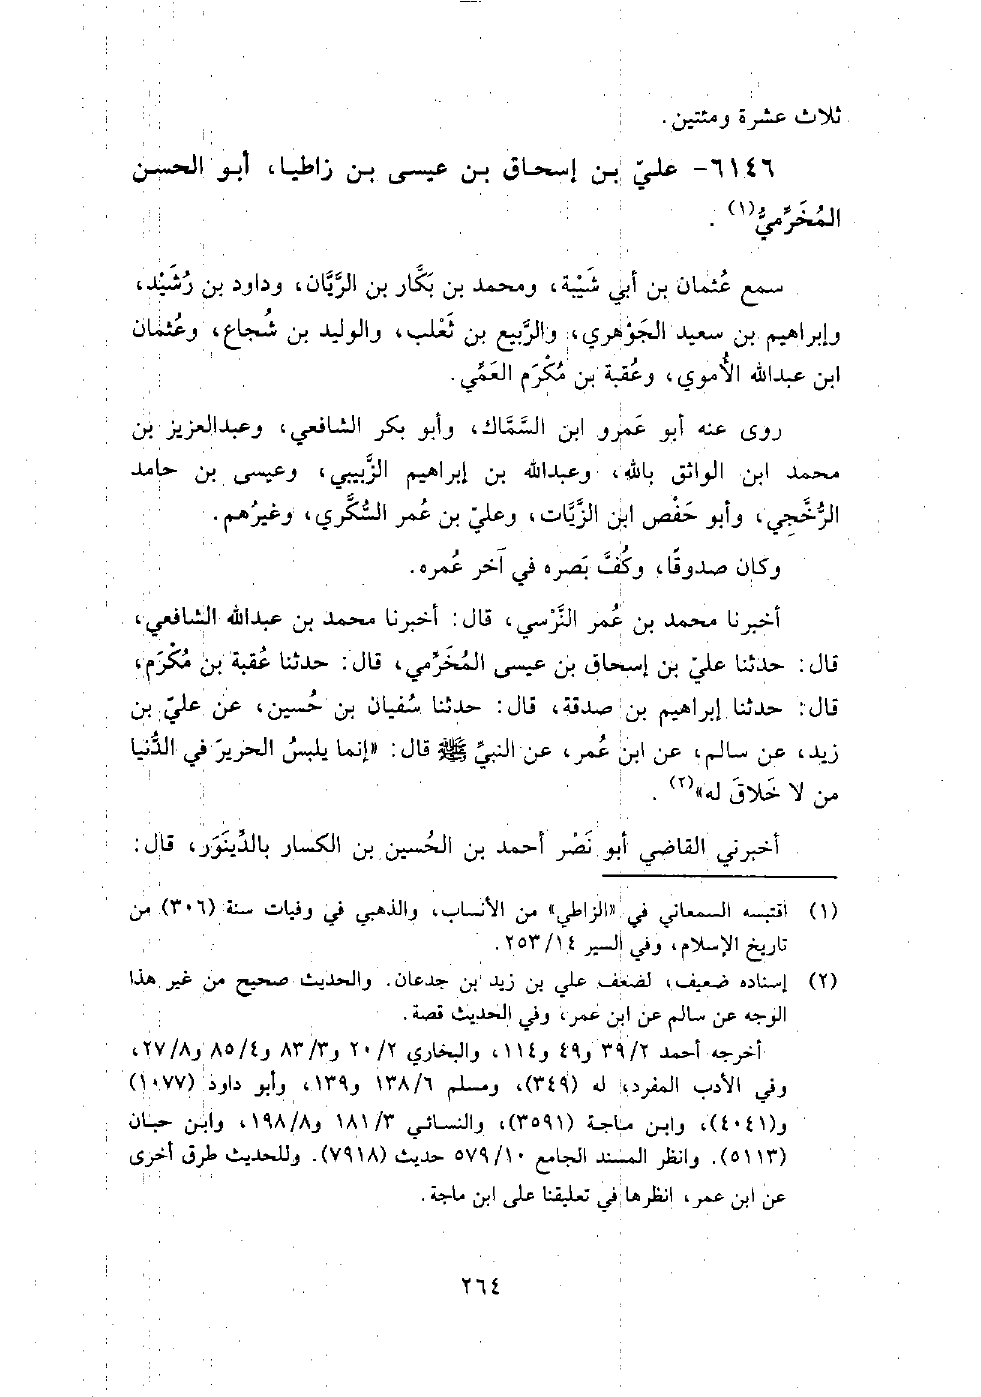 ثلاث عشرة ومئتين.
٦١٤٦- عليّ بن إسحاق بن عيسى بن زاطيا، أبو الحسن
المُخَرِّميُّ(١).
سمع عُثمان بن أبي شَيْبة، ومحمد بن بَكَّار بن الرَّيَّان، وداود بن رُشَيْد،
وإبراهيم بن سعيد الجَوْهري، والرَّبيع بن ثَعْلب، والوليد بن شُجاع، وعُثمان
ابن عبدالله الأُموي، وعُقبة بن مُكْرَم العَمِّي.
روى عنه أبو عَمرو ابن السَّمَّاك، وأبو بكر الشافعي، وعبدالعزيز بن
محمد ابن الواثق بالله، وعبدالله بن إبراهيم الزَّبيبي، وعيسى بن حامد
الرُّخَّجِي، وأبو حَفْص ابن الزَّيَّات، وعليّ بن عُمر السُّكَّري، وغيرُهم.
وكان صدوقًا، وكُفَّ بَصره في آخر عُمره.
أخبرنا محمد بن عُمر النَّرْسي، قال: أخبرنا محمد بن عبدالله الشافعي،
قال: حدثنا عليّ بن إسحاق بن عيسى المُخَرِّمي، قال: حدثنا عُقبة بن مُكْرَم،
قال: حدثنا إبراهيم بن صدقة، قال: حدثنا سُفيان بن حُسين، عن عليّ بن
زيد، عن سالم، عن ابن عُمر، عن النبيِّ ﷺ قال: «إنما يلبسُ الحريرَ في الدُّنيا
من لا خَلاقَ له»(٢).
أخبرني القاضي أبو نَصْر أحمد بن الحُسين بن الكسار بالدِّينَوَر، قال:
(١) اقتبسه السمعاني في «الزاطي» من الأنساب، والذهبي في وفيات سنة (٣٠٦) من
تاريخ الإسلام، وفي السير ١٤/ ٢٥٣.
(٢) إسناده ضعيف، لضعف علي بن زيد بن جدعان. والحديث صحيح من غير هذا
الوجه عن سالم عن ابن عمر، وفي الحديث قصة.
أخرجه أحمد ٢/ ٣٩ و٤٩ و١١٤، والبخاري ٢/ ٢٠ و٣/ ٨٣ و٤/ ٨٥ و٨/ ٢٧،
وفي الأدب المفرد، له (٣٤٩)، ومسلم ٦/ ١٣٨ و١٣٩، وأبو داود (١٠٧٧)
و(٤٠٤١)، وابن ماجة (٣٥٩١)، والنسائي ٣/ ١٨١ و٨/ ١٩٨، وابن حبان
(٥١١٣). وانظر المسند الجامع ١٠/ ٥٧٩ حديث (٧٩١٨). وللحديث طرق أخرى
عن ابن عمر، انظرها في تعليقنا على ابن ماجة.
٢٦٤